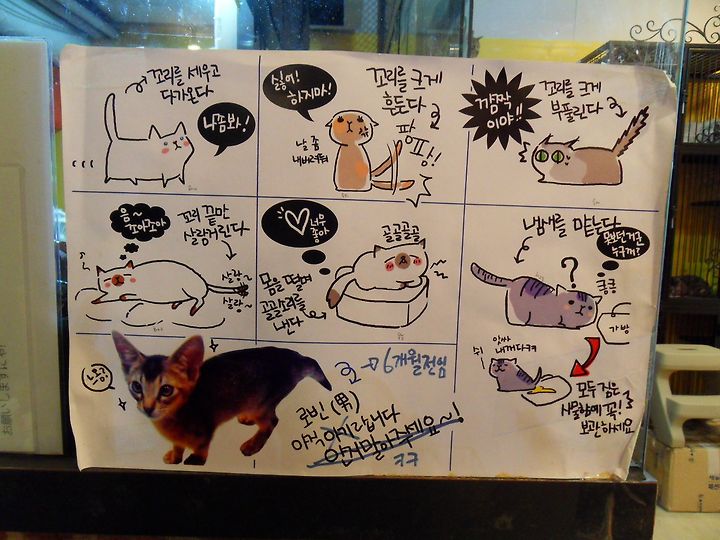 꼬리를 세우고
다가온다
나쫌봐!
싫어!
하지마!
꼬리를 크게
흔든다
팡
팡!!
날 좀
내버려둬
깜짝
이야!!
꼬리를 크게
부풀린다
음~
조아조아
꼬리 끝만
살랑거린다
살랑~
살랑~
너무
좋아
골골골골
몸을 떨며
골골소리를
낸다
냄새를 맡는다
못보던거군
누구꺼?
?
킁킁
가방
앗싸
내꺼다ㅋㅋ
쉬
모두 짐은
사물함에 꼭!
보관하세요
→ 6개월전임
로빈 (男)
아직 아기랍니다
ㅋㅋ
お願いします